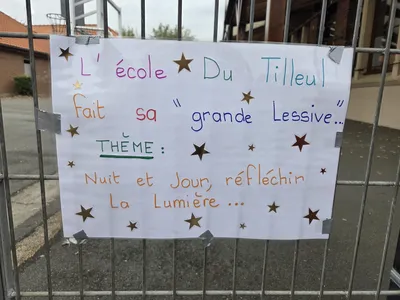 L'école Du Tilleul
fait sa "grande Lessive"...
THÈME :
Nuit et Jour, réfléchir
La Lumière ...